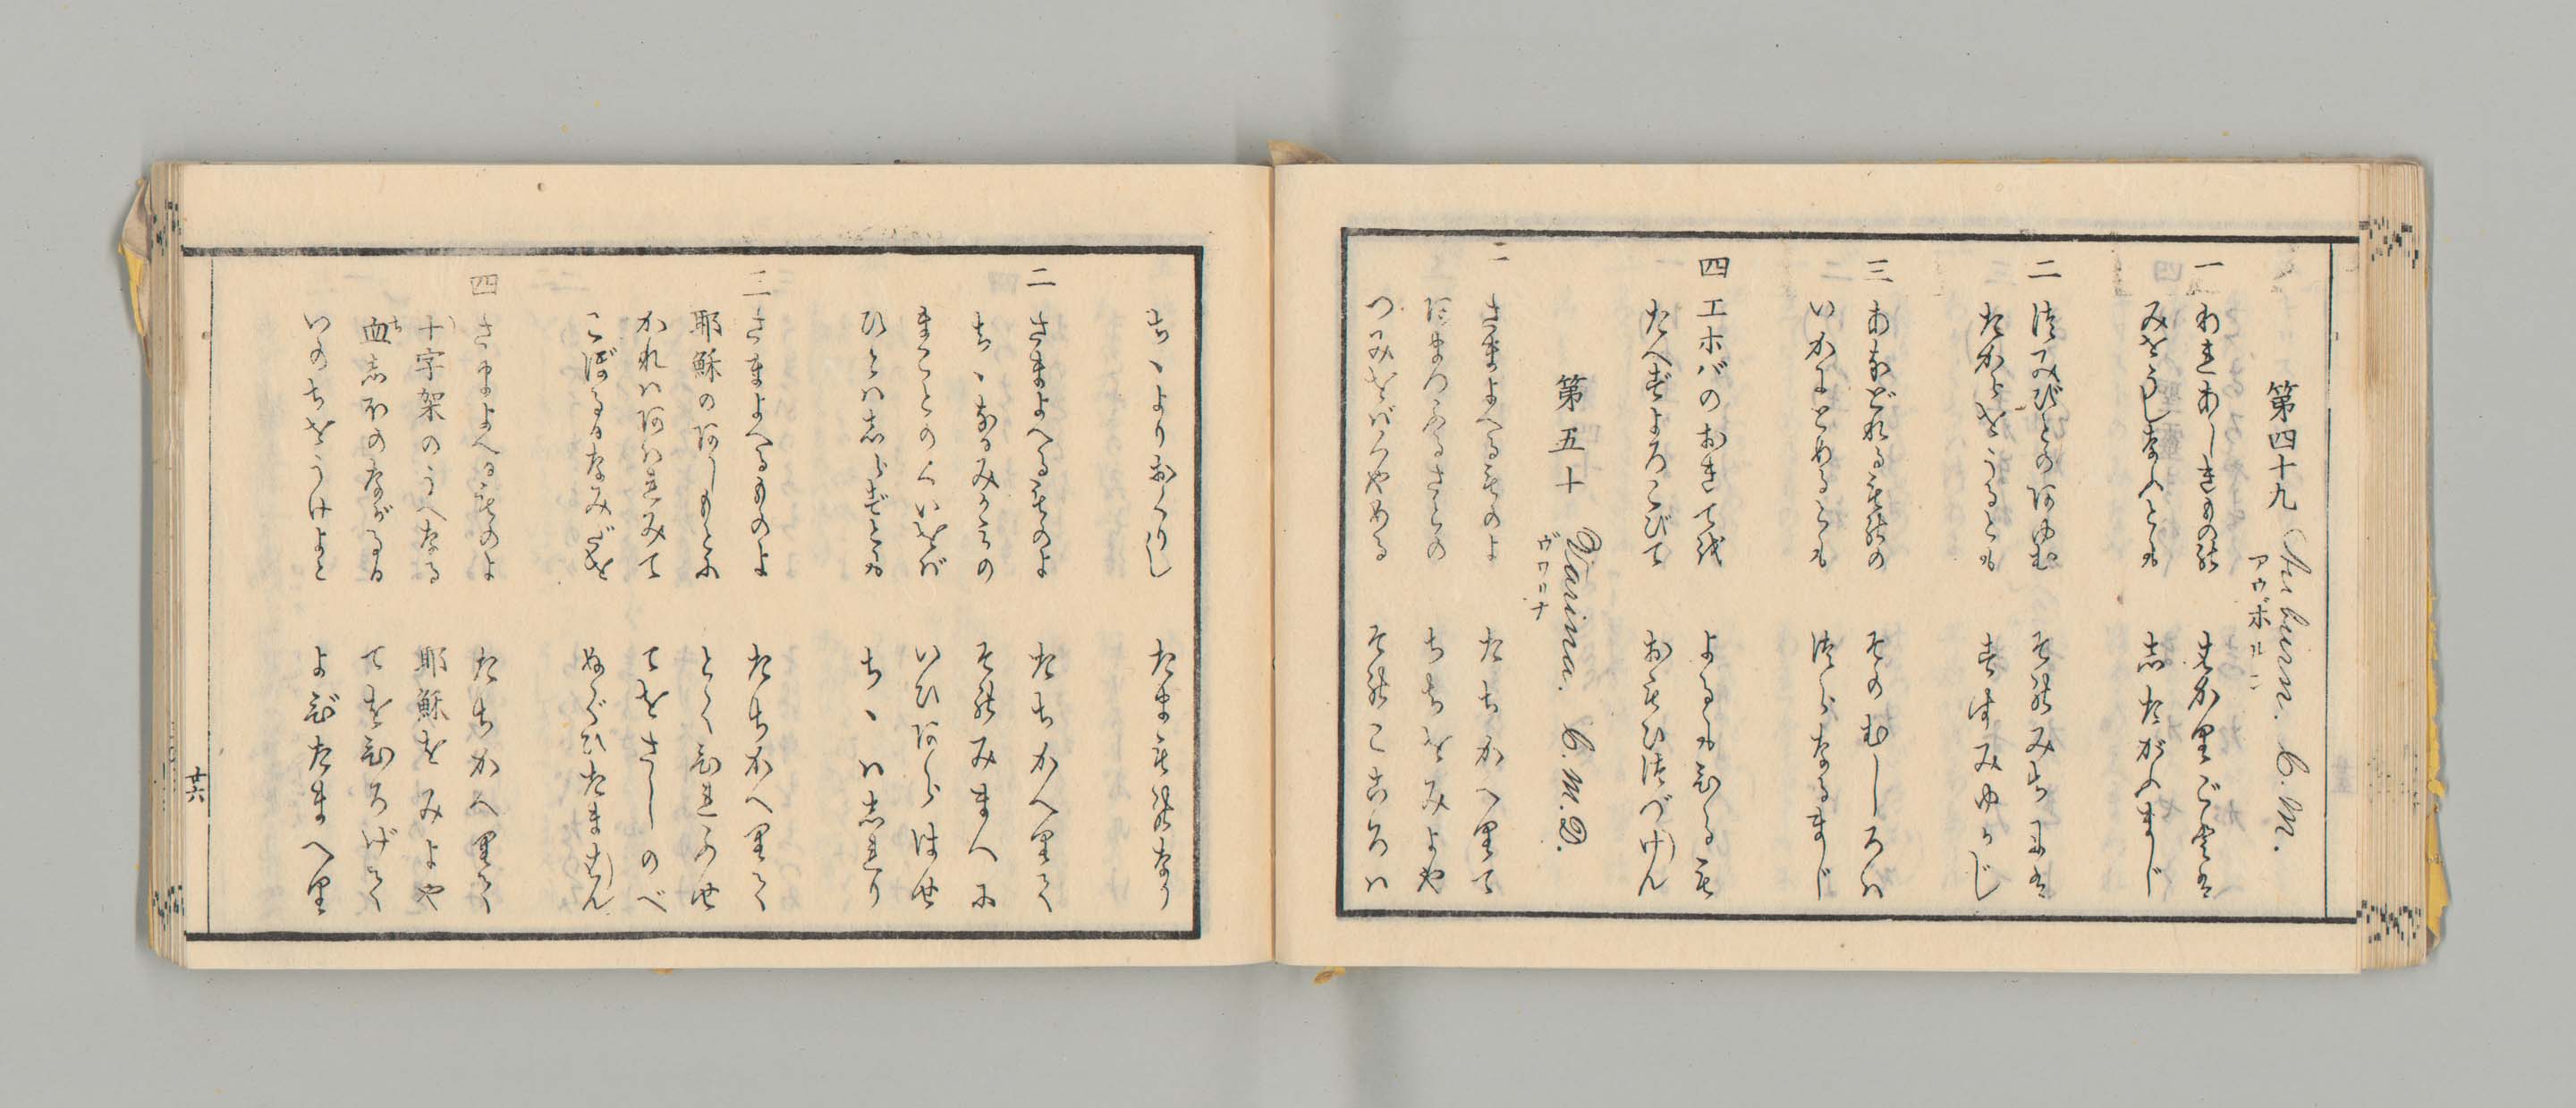 第四十九 Auburn. C.M.
アウボルン
一 われあしきものの はかりごとを
みをうしなふとも したがふまじ
二 つみびとのあゆむ そのみちにを
たからをうるとも すすみゆかじ
三 あなどれるものの そのむしろは
いかにとめるとも つらなるまじ
四 エホバのおきてを よるもひるも
たへずよろこびて おもひつづけん
第五十 Varina. C.M.D.
ヴワリナ
一 さまよへるものよ たちかへりて
あまつふるさとの ちちをみよや
つみをばくやめる そのこころは
ちゝよりおくりし たまものなり
二 さまよへるものよ たちかへりて
ちゝなるみかみの そのみまへに
まことのくいをば いひあらはせ
ひとはしらずとも ちゝはしれり
三 さまよへるものよ たちかへりて
耶穌のあしもとに とくひれふせ
かれはあはれみて てをさしのべ
こぼるるなみだを ぬぐひたまはん
四 さまよへるものよ たちかへりて
十字架のうへなる 耶穌をみよや
血しほのながるる てをひろげて
いのちをうけよと よびたまへり
廿六